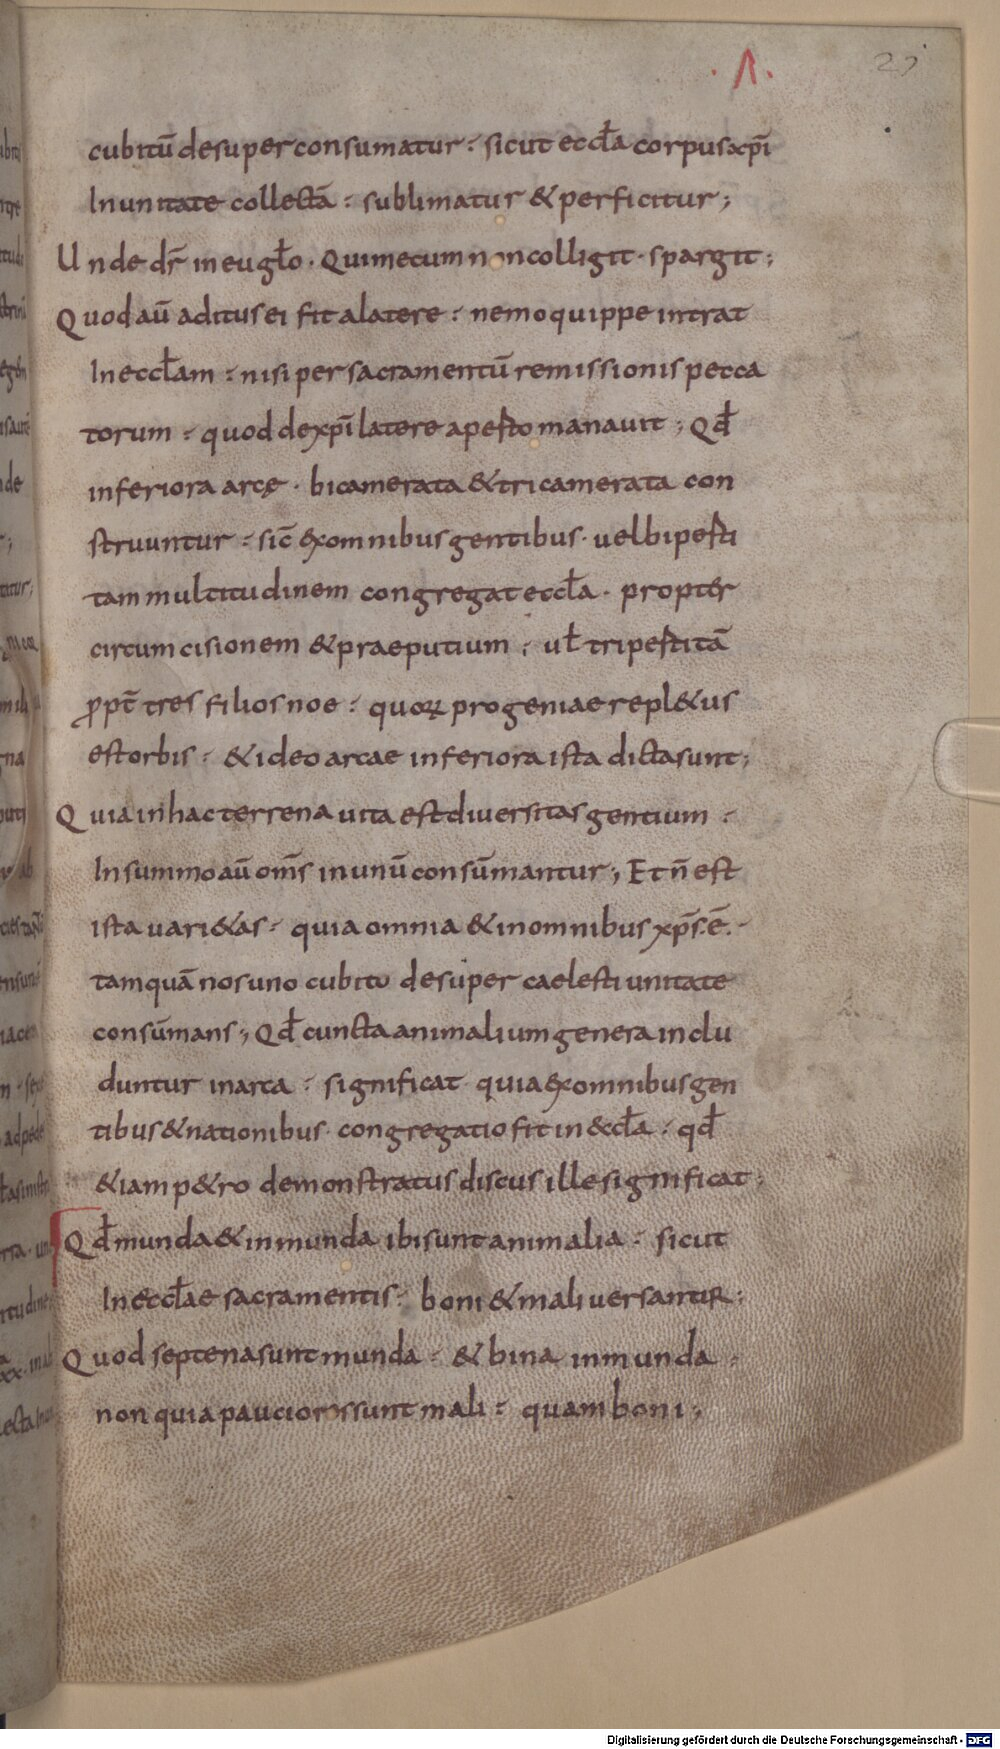 .Λ. 27
cubitū desuper consumatur : sicut eccƚa corpus xp̄i
In unitate collectā : sublimatur & perficitur ;
Unde dr̄ in eugƚo · Qui mecum non colligit · spargit ;
Quod aū aditus ei fit a latere : nemo quippe intrat
In eccƚam : nisi per sacramentū remissionis pecca
torum : quod de xp̄i latere aperto manauit ; Qđ
inferiora arcę · bicamerata & tricamerata con
struuntur : sic̄ ex omnibus gentibus · uel biperti
tam multitudinem congregat eccƚa · propter
circumcisionem & praeputium ; uƚ tripertitā
ꝓpt̄ tres filios noe : quoꝝ progeniae repl&us
est orbis : & ideo arcae inferiora ista dicta sunt ;
Quia in hac terrena uita est diuersitas gentium :
In summo aū om̄s in unū consūmantur ; Et n̄ est
ista uari&as : quia omnia & in omnibus xp̄s ē. ·
tamquā nos uno cubito desuper caelesti unitate
consūmans ; Qđ cuncta animalium genera inclu
duntur in arca : significat quia ex omnibus gen
tibus & nationibus · congregatio fit in &cƚa : qđ
&iam p&ro demonstratus discus ille significat ;
Qđ munda & inmunda ibi sunt animalia : sicut
In eccƚae sacramentis : boni & mali uersantur ;
Quod septena sunt munda : & bina inmunda :
non quia pauciores sunt mali : quam boni ;
Digitalisierung gefördert durch die Deutsche Forschungsgemeinschaft - DFG